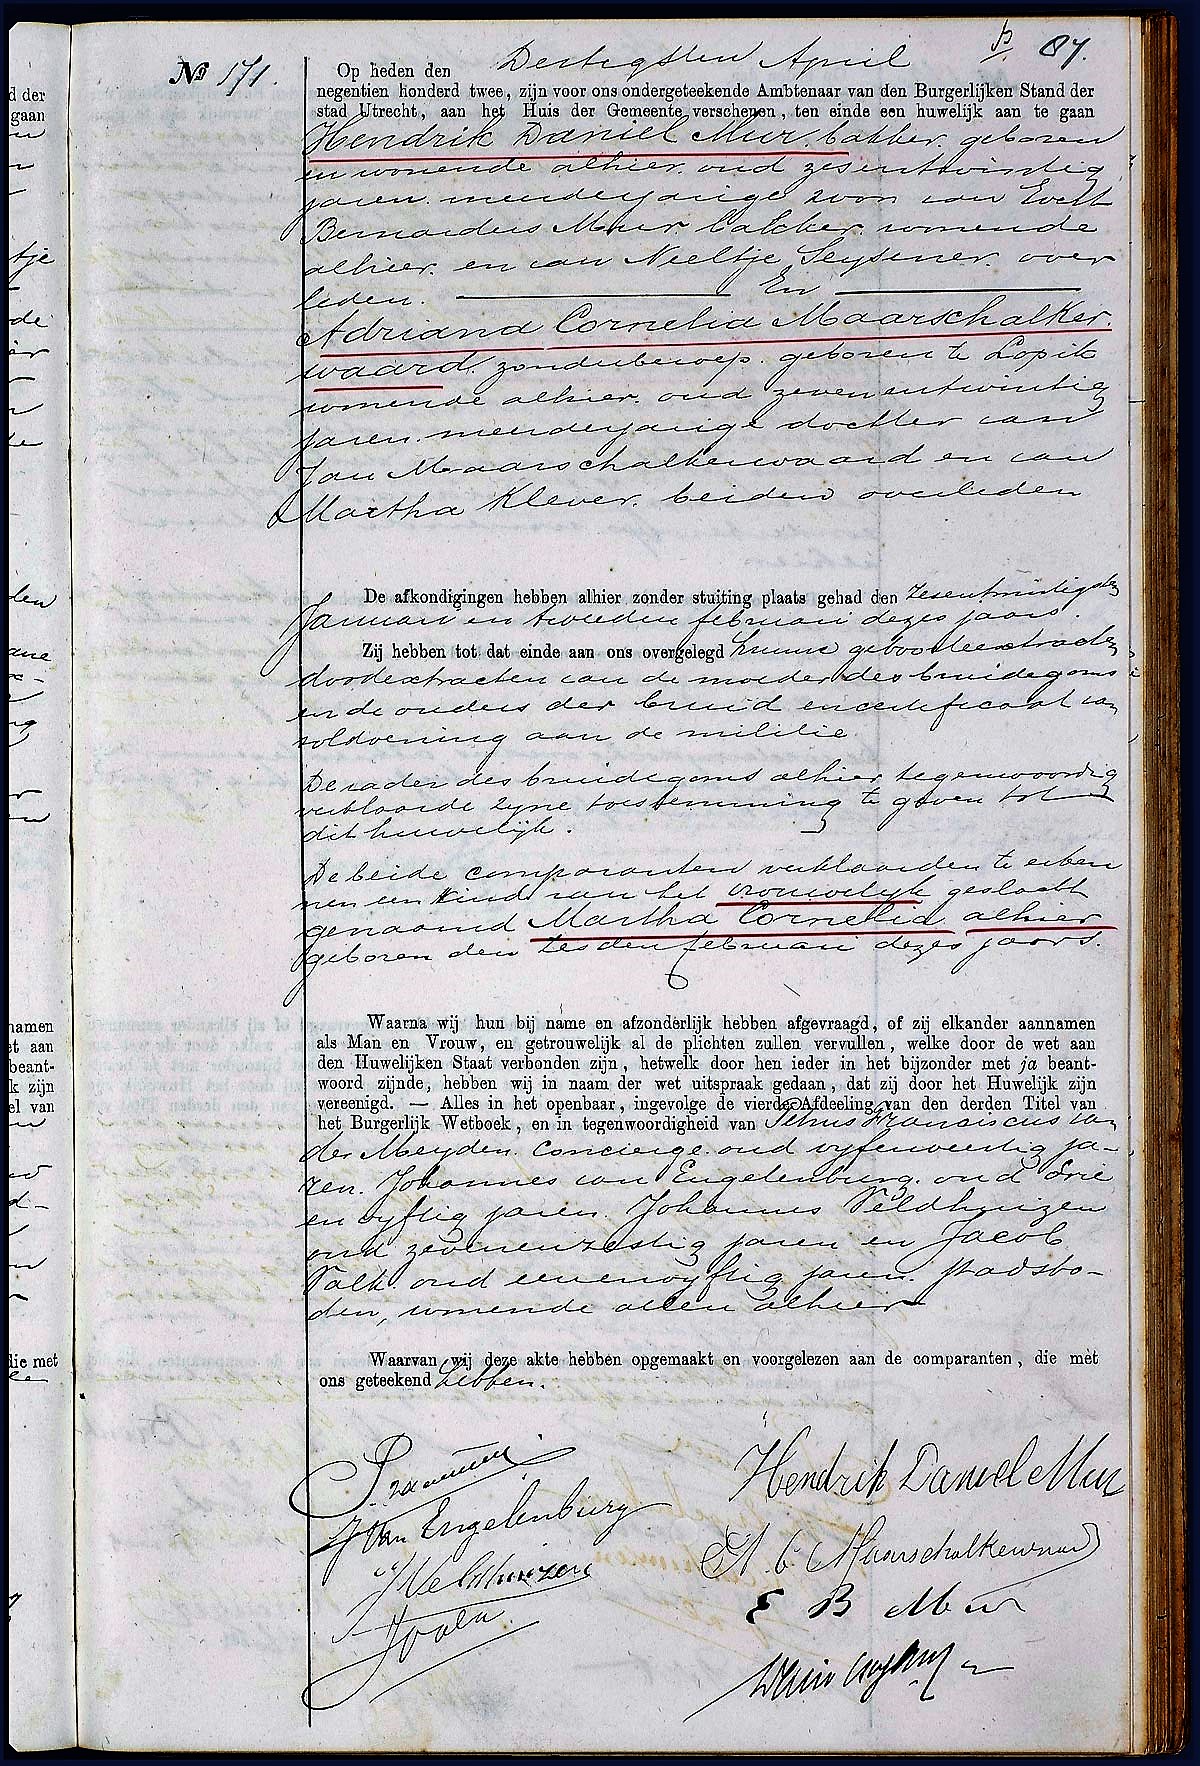 № 171.
87.
Op heden den Dertigsten April
negentien honderd twee, zijn voor ons ondergeteekende Ambtenaar van den Burgerlijken Stand der
stad Utrecht, aan het Huis der Gemeente verschenen, ten einde een huwelijk aan te gaan
Hendrik Daniel Mur, bakker, geboren
en wonende alhier, oud zesentwintig
jaren, meerderjarige zoon van Evert
Bernardus Mur, bakker, wonende
alhier, en van Neeltje Seysener, over
leden. En
Adriana Cornelia Maarschalker.
waard, zonder beroep, geboren te Lopik
wonende alhier, oud zevenentwintig
jaren, meerderjarige dochter van
Jan Maarschalkerwaard en van
Martha Klever, beiden overleden
De afkondigingen hebben alhier zonder stuiting plaats gehad den zesentwintigsten
Januari en tweeden februari dezes jaars.
Zij hebben tot dat einde aan ons overgelegd hunne geboorteextracten
doodextracten van de moeder des bruidegoms
en de ouders der bruid en certificaat van
voldoening aan de militie.
De vader des bruidegoms alhier tegenwoordig
verklaarde zijne toestemming te geven tot
dit huwelijk.
De beide comparanten verklaarden te erken
nen een kind van het vrouwelijk geslacht
genaamd Martha Cornelia alhier
geboren den zesden februari dezes jaars.
Waarna wij hun bij name en afzonderlijk hebben afgevraagd, of zij elkander aannamen
als Man en Vrouw, en getrouwelijk al de plichten zullen vervullen, welke door de wet aan
den Huwelijken Staat verbonden zijn, hetwelk door hen ieder in het bijzonder met ja beant-
woord zijnde, hebben wij in naam der wet uitspraak gedaan, dat zij door het Huwelijk zijn
vereenigd. — Alles in het openbaar, ingevolge de vierde Afdeeling van den derden Titel van
het Burgerlijk Wetboek, en in tegenwoordigheid van Petrus Franciscus van
der Meyden, concierge, oud vyfenveertig ja-
ren, Johannes van Engelenburg, oud drie
en vyftig jaren, Johannes Veldhuizen
oud zevenenzestig jaren en Jacob
Valk, oud eenenvyftig jaren, stadsbo-
den, wonende allen alhier
Waarvan wij deze akte hebben opgemaakt en voorgelezen aan de comparanten, die met
ons geteekend hebben.
Hendrik Daniel Mur
J Van Engelenburg
A. C. Maarschalkerwaard
J Veldhuizen
E B Mur